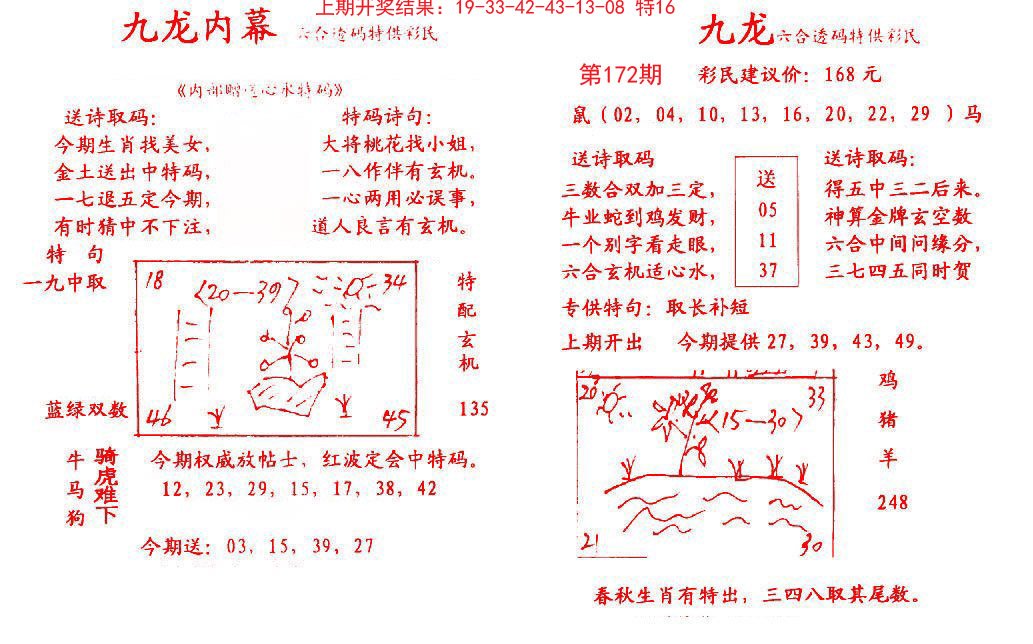 上期开奖结果：19-33-42-43-13-08 特16
九龙内幕 六合透码特供彩民
《内部赠送心水特码》
送诗取码：
今期生肖找美女，
金土送出中特码，
一七退五定今期，
有时猜中不下注，
特码诗句：
大将桃花找小姐，
一八作伴有玄机。
一心两用必误事，
道人良言有玄机。
特句
一九中取
蓝绿双数
18
〈20—39〉
34
46
45
特配玄机
135
牛马狗
骑虎难下
今期权威放帖士，红波定会中特码。
12，23，29，15，17，38，42
今期送：03，15，39，27
九龙六合透码特供彩民
第172期 彩民建议价：168元
鼠（02，04，10，13，16，20，22，29 ）马
送诗取码
三数合双加三定，
牛业蛇到鸡发财，
一个别字看走眼，
六合玄机适心水，
送
05
11
37
送诗取码：
得五中三二后来。
神算金牌玄空数
六合中间问缘分，
三七四五同时贺
专供特句：取长补短
上期开出 今期提供27，39，43，49。
20
33
〈15—30〉
21
30
鸡
猪
羊
248
春秋生肖有特出，三四八取其尾数。